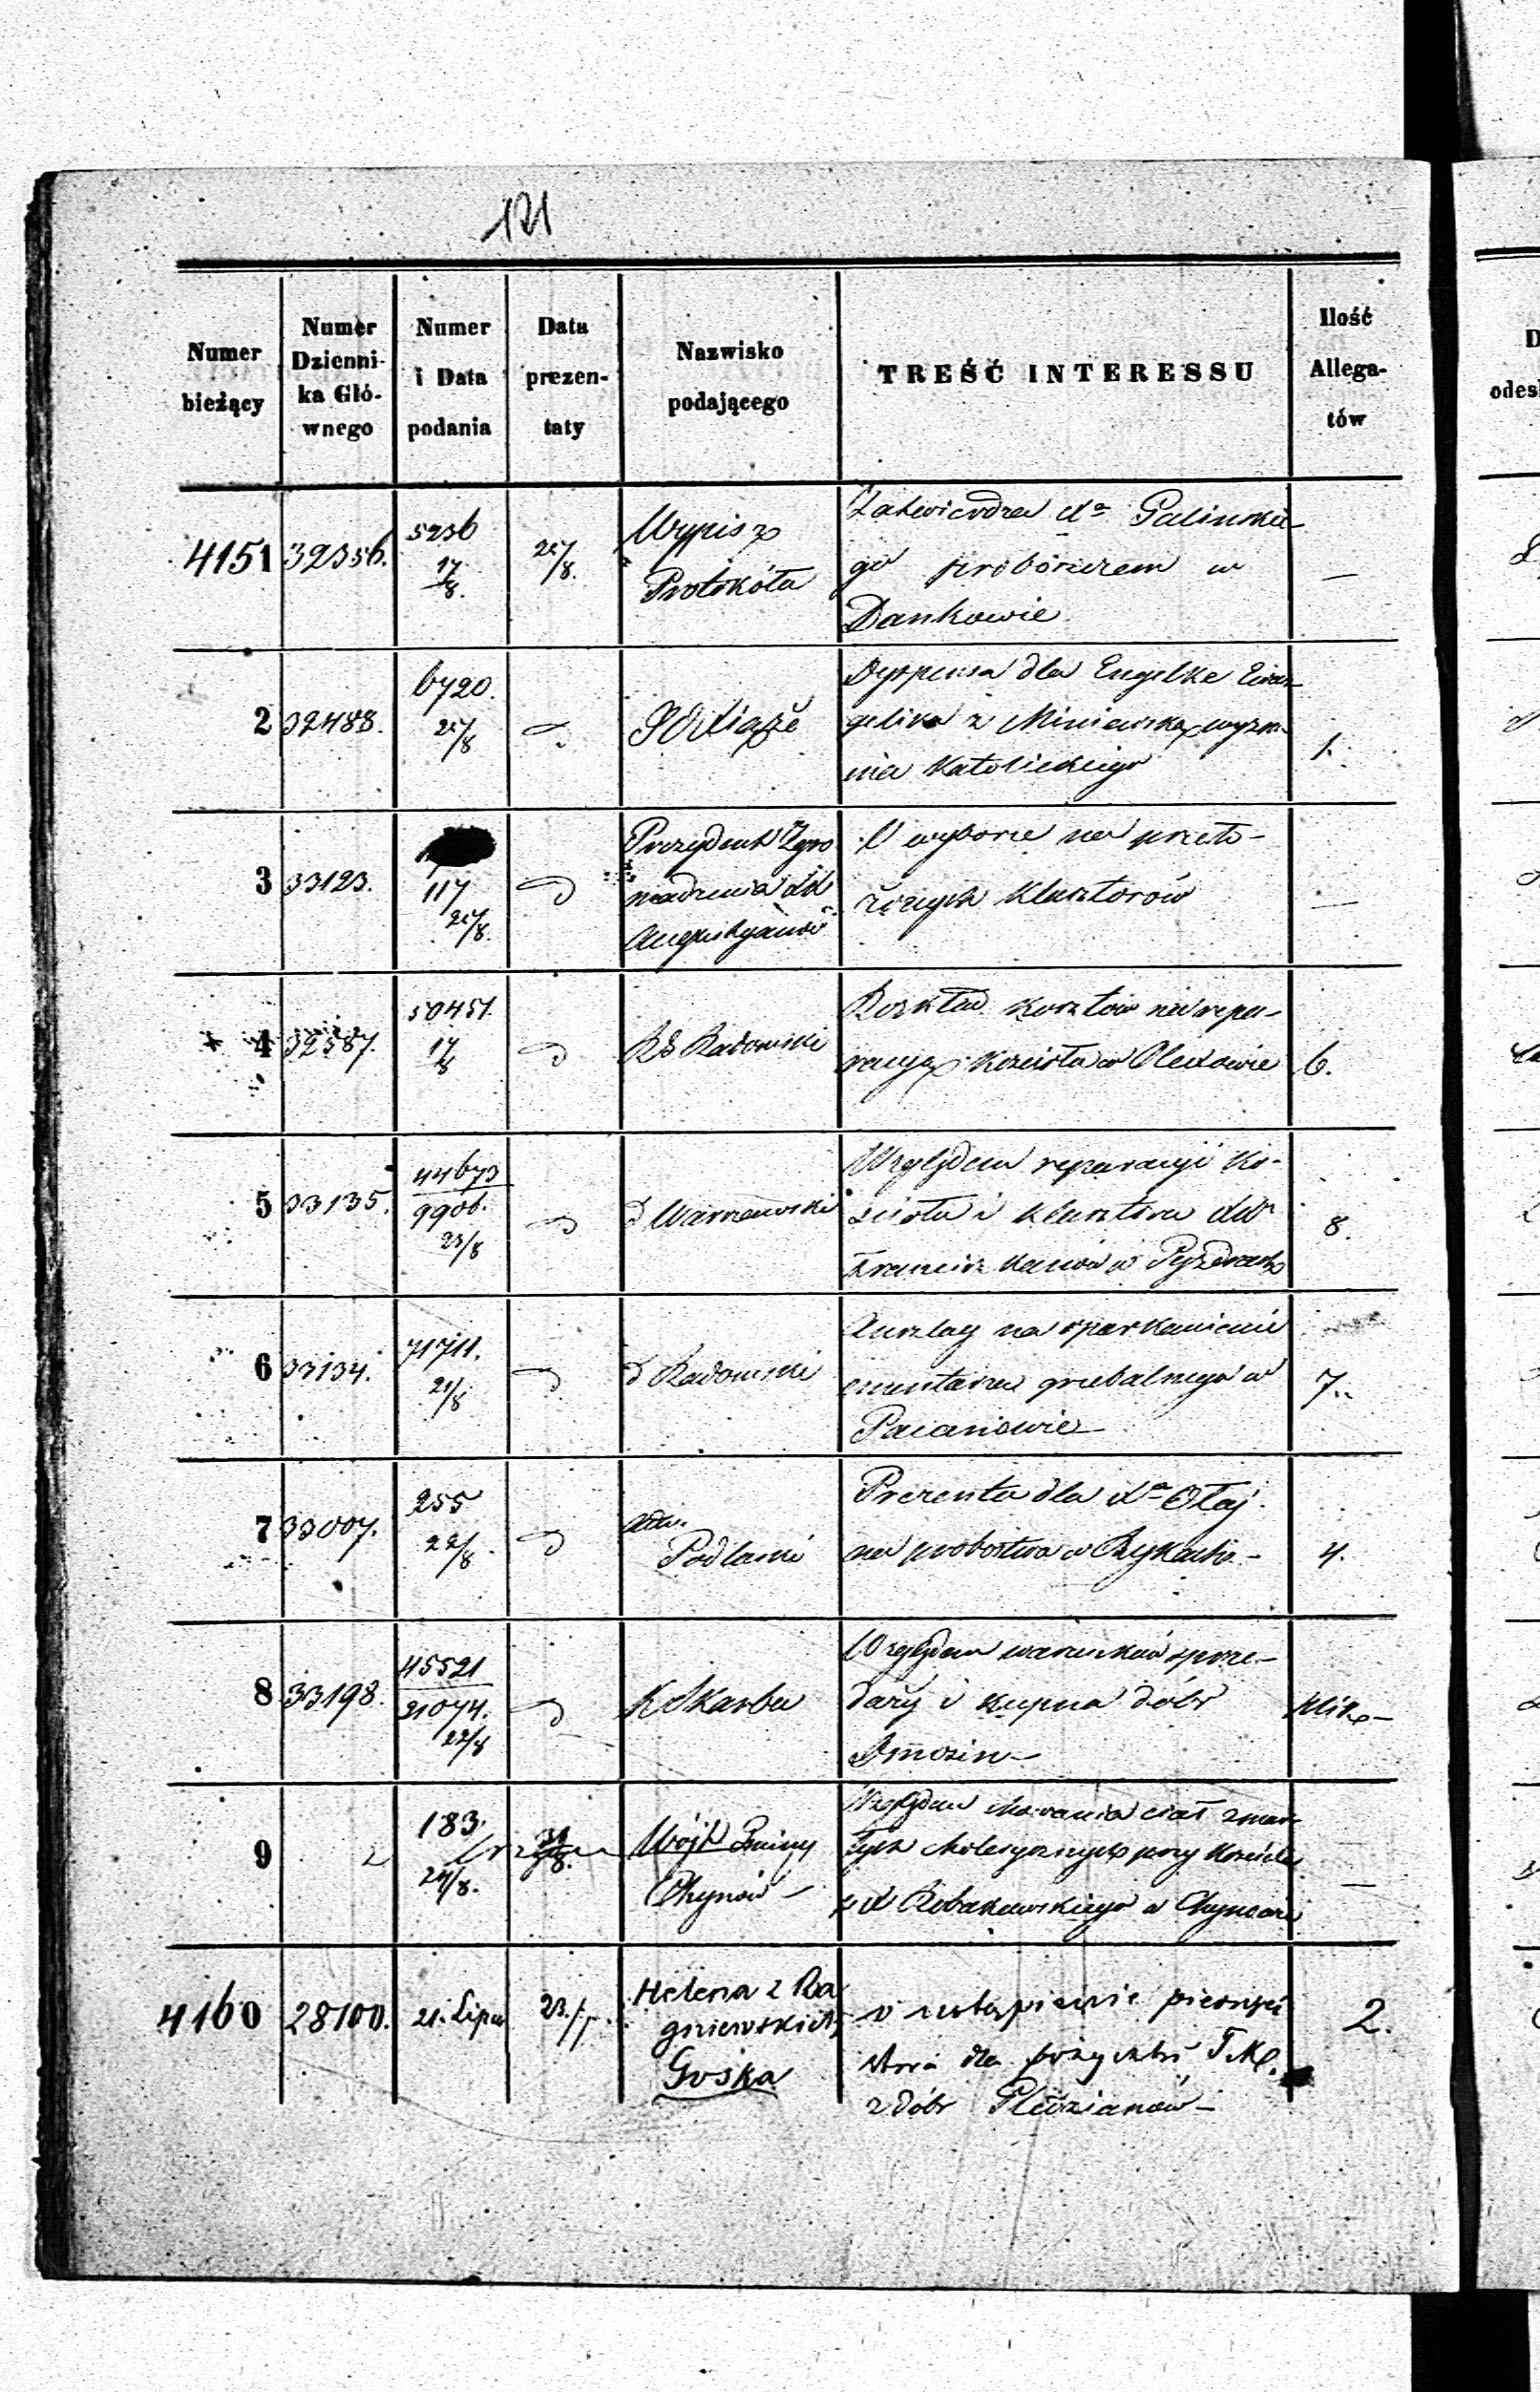 121
Numer bieżący
Numer Dzienni-
ka Głó-
wnego
Numer
i Data
podania
Data
prezen-
taty
Nazwisko
podającego
TREŚĆ INTERESSU
Ilość
Allega-
tów
4151 32356. 5236 17/8. 25/8.
Wypis z
Protokóła
Zatwierdza Xa Palinskie-
go proboszczem w
Dankowie
—
2 32488. 6720. 25/8
Dyspensa dla Engelke Ewan-
gelika z Miniewską wyzna-
nia Katolickiego
1.
3 33123. 117 25/8.
Prezydent Zgro
madzenia XX
Augustyanów
O wyborze na przeło-
żonych Klasztorów
—
4 32587. 50451. 17/8
RG Radomski
Rozkład kosztów na repa-
racyą Kościoła w Olexowie
6.
5 33135. 44673
9906. 23/8
d Warszawski
Względem reparacyi Ko-
ścioła i Klasztora XX
Franciszkanów w Pyzdrach
8.
6 33134. 71711. 21/8
d Radomski
Anszlag na oparkanienie
cmentarza grzebalnego w
Pacanowie
7.
7 33007. 255 22/8.
Podlaski
Prezenta dla Xa
na probostwo w Rykach.-
4.
8 33198. 45521
21074. 22/8
K Skarbu
Względem warunków sprze-
daży i kupna dóbr
9 183. 24/8.
Wójt Gminy
Chynów -
Względem chowania ciał zmar-
łych cholerycznych przy Kościele
p X Robakowskiego w Chynowie
—
4160 28100. 21. Lipca
Helena z Ra
gniewskich
Goska
o ustąpienie pierwszeń
stwa dla pożyczki T.K.
z dóbr
2.